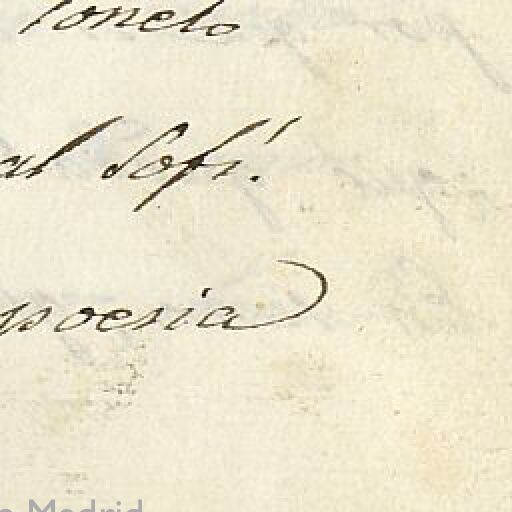 Soneto
al Sofí.
poesia
Madrid